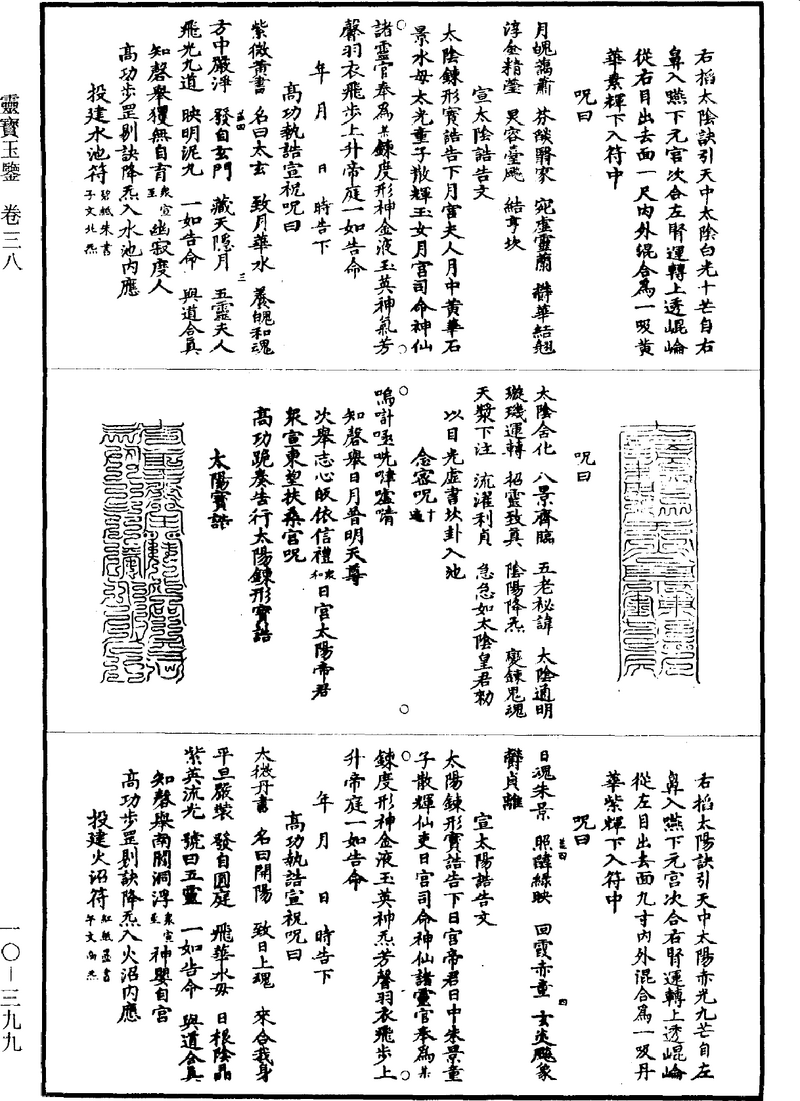 靈寶玉鑒　卷三八
一〇—三九九
右搯太陰訣引天中太陰白光十芒自右
鼻入嚥下元宮次合左腎運轉上透崐崘
從右目出去面一尺內外緄合為一吸黃
華素輝下入符中
呪曰
月魄藹蕭　芬𦦨翳寥　宛虛靈蘭　鬱華結翹
淳金精瑩　炅容臺飈　結亨坎
宣太陰誥告文
太陰鍊形寶誥告下月宮夫人月中黃華石
景水母太光童子散輝玉女月宮司命神仙
諸靈官奉為某鍊度形神金液玉英神氣芳
馨羽衣飛步上升帝庭一如告命
年　月　日　時告下
高功執誥宣祝呪曰
紫微黃書　名曰太玄　致月華水　養魄和魂
方中嚴淨　發自玄門　藏天隱月　五靈夫人
飛光九道　映明泥丸　一如告命　與道合真
知磬舉獲無自育衆宣至幽寂度人
高功步罡剔訣降炁入水池內應
投建水池符碧紙朱書子文北炁
呪曰
太陰含化　八景齊臨　五老祕諱　太陰通明
璇璣運轉　招靈致真　陰陽降炁　變鍊鬼魂
天漿下注　流濯利貞　急急如太陰皇君勑
以目光虛書坎卦入池
念密呪十遍
知磬舉日月普明天尊
次舉志心皈依信禮衆和日宮太陽帝君
衆宣東望扶桑宮呪
高功跪奏告行太陽鍊形寶誥
太陽寶誥
右搯太陽訣引天中太陽赤光九芒自左
鼻入嚥下元宮次合右腎運轉上透崐崘
從左目出去面九寸內外混合為一吸丹
華紫輝下入符中
呪曰
日魂朱景　照韜綠映　回霞赤童　玄炎飈象
鬱貞離
宣太陽誥告文
太陽鍊形寶誥告下日宮帝君日中朱景童
子散輝仙吏日宮司命神仙諸靈官奉為某
鍊度形神金液玉英神炁芳馨羽衣飛步上
升帝庭一如告命
年　月　日　時告下
高功執誥宣祝呪曰
太微丹書　名曰開陽　致日上魂　來合我身
平旦嚴裝　發自圓庭　飛華水母　日根陰晶
紫英流光　號曰五靈　一如告命　與道合真
知磬舉南閻洞浮衆宣至神嬰自宮
高功步罡剔訣降炁入火沼內應
投建火沼符紅紙墨書午文南炁